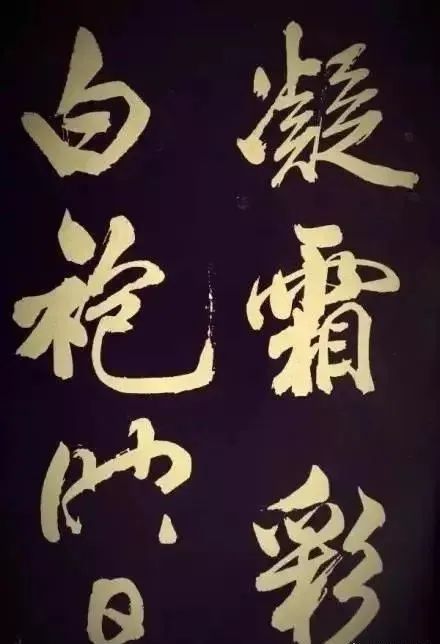 凝霜彩
白袍映日